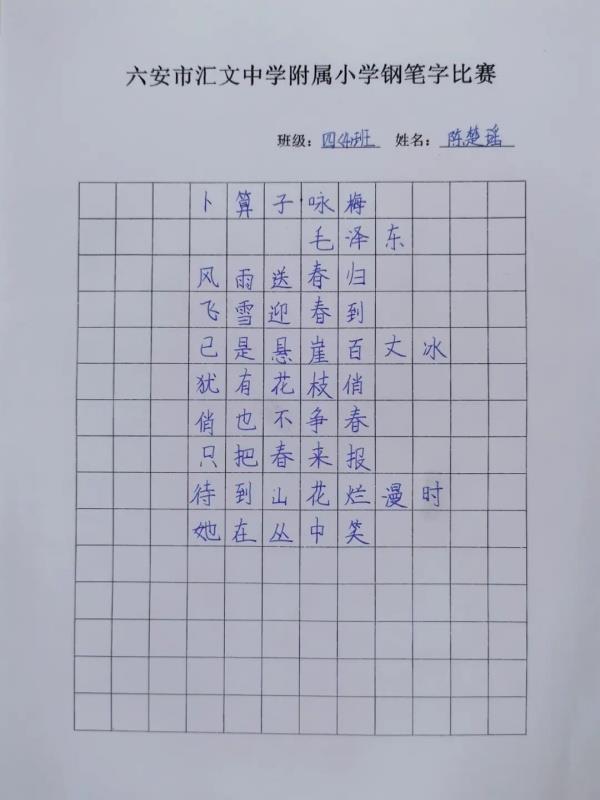 六安市汇文中学附属小学钢笔字比赛
班级：四〈4〉班 姓名：陈楚瑶
卜算子咏梅
毛泽东
风雨送春归
飞雪迎春到
已是悬崖百丈冰
犹有花枝俏
俏也不争春
只把春来报
待到山花烂漫时
她在丛中笑